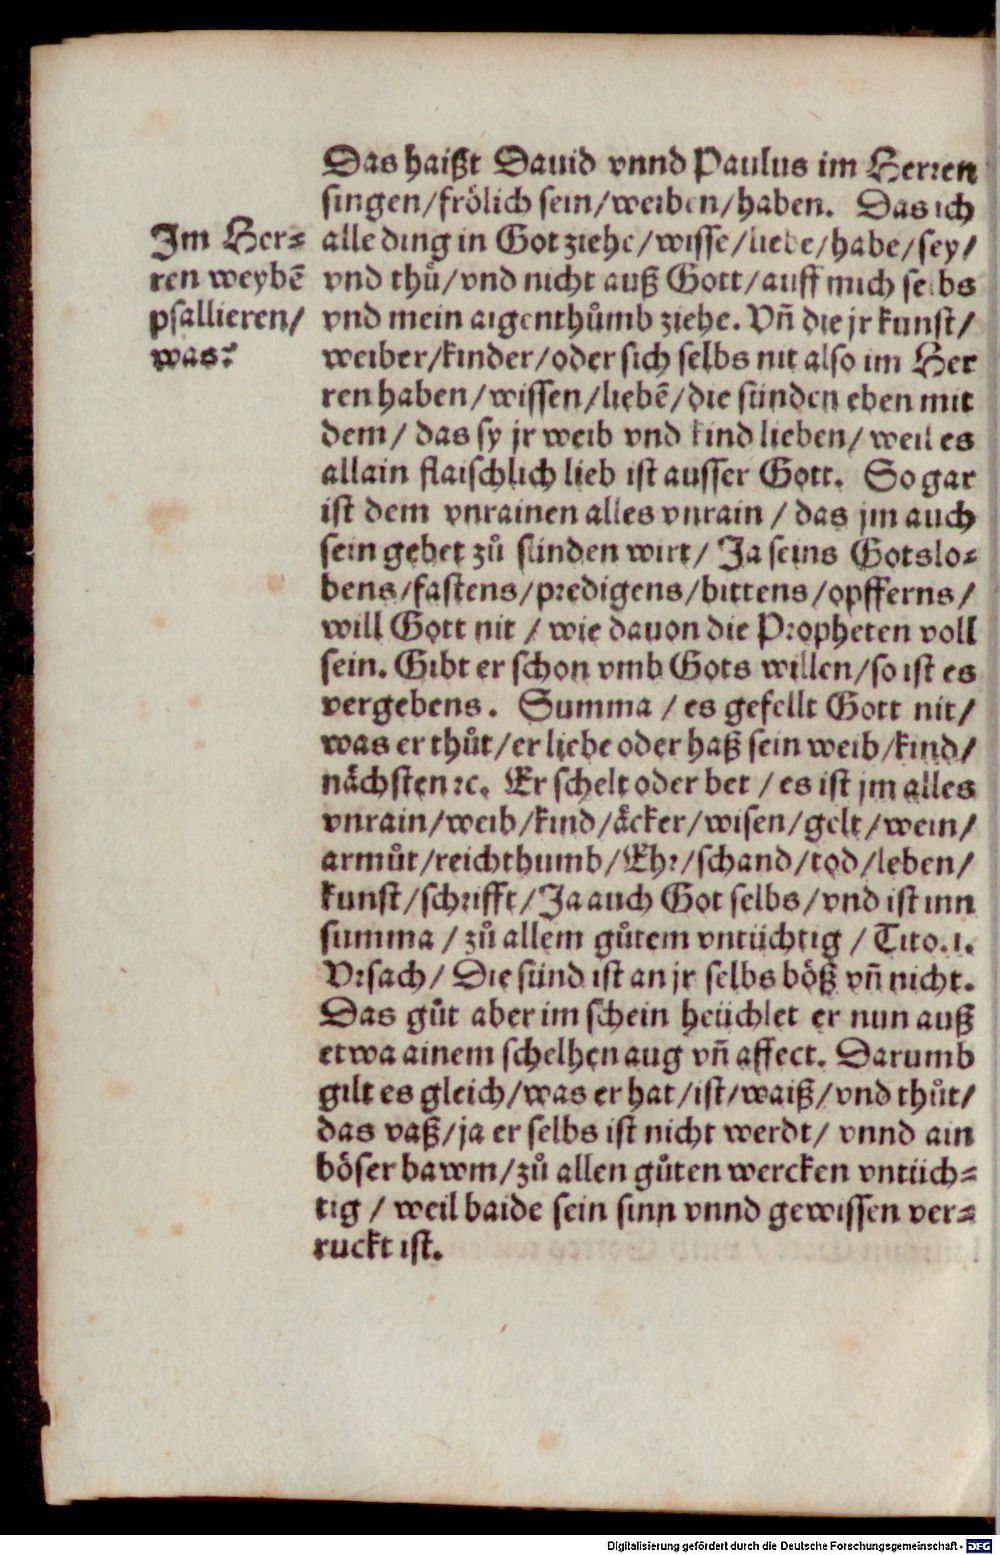 Das haißt Dauid vnnd Paulus im Herren
singen/frölich sein/weiben/haben. Das ich
alle ding in Got ziehe/wisse/liebe/habe/sey/
vnd thuͦ/vnd nicht auß Gott/auff mich selbs
vnd mein aigenthuͦmb ziehe. Vn̄ die jr kunst/
weiber/kinder/oder sich selbs nit also im Her
ren haben/wissen/liebē/die sünden eben mit
dem/ das sy jr weib vnd kind lieben/ weil es
allain flaischlich lieb ist ausser Gott. So gar
ist dem vnrainen alles vnrain / das jm auch
sein gebet zuͦ sünden wirt/ Ja seins Gotslo⸗
bens/fastens/predigens/bittens/opfferns/
will Gott nit / wie dauon die Propheten voll
sein. Gibt er schon vmb Gots willen/so ist es
vergebens. Summa / es gefellt Gott nit/
was er thuͦt/er liebe oder haß sein weib/kind/
nächsten ꝛc. Er schelt oder bet / es ist jm alles
vnrain/weib/kind/äcker/wisen/gelt/wein/
armuͦt/reichthumb/Ehr/schand/tod/leben/
kunst/schrifft/Ja auch Got selbs/vnd ist inn
summa / zuͦ allem guͦtem vntüchtig / Tito.1.
Vrsach/ Die sünd ist an jr selbs böß vn̄ nicht.
Das guͦt aber im schein heüchlet er nun auß
etwa ainem schelhen aug vn̄ affect. Darumb
gilt es gleich/was er hat/ist/waiß/vnd thuͦt/
das vaß/ja er selbs ist nicht werdt/ vnnd ain
böser bawm/zuͦ allen guͦten wercken vntüch⸗
tig / weil baide sein sinn vnnd gewissen ver⸗
ruckt ist.
Im Her⸗
ren weybē
psallieren/
was?
Digitalisierung gefördert durch die Deutsche Forschungsgemeinschaft - DFG